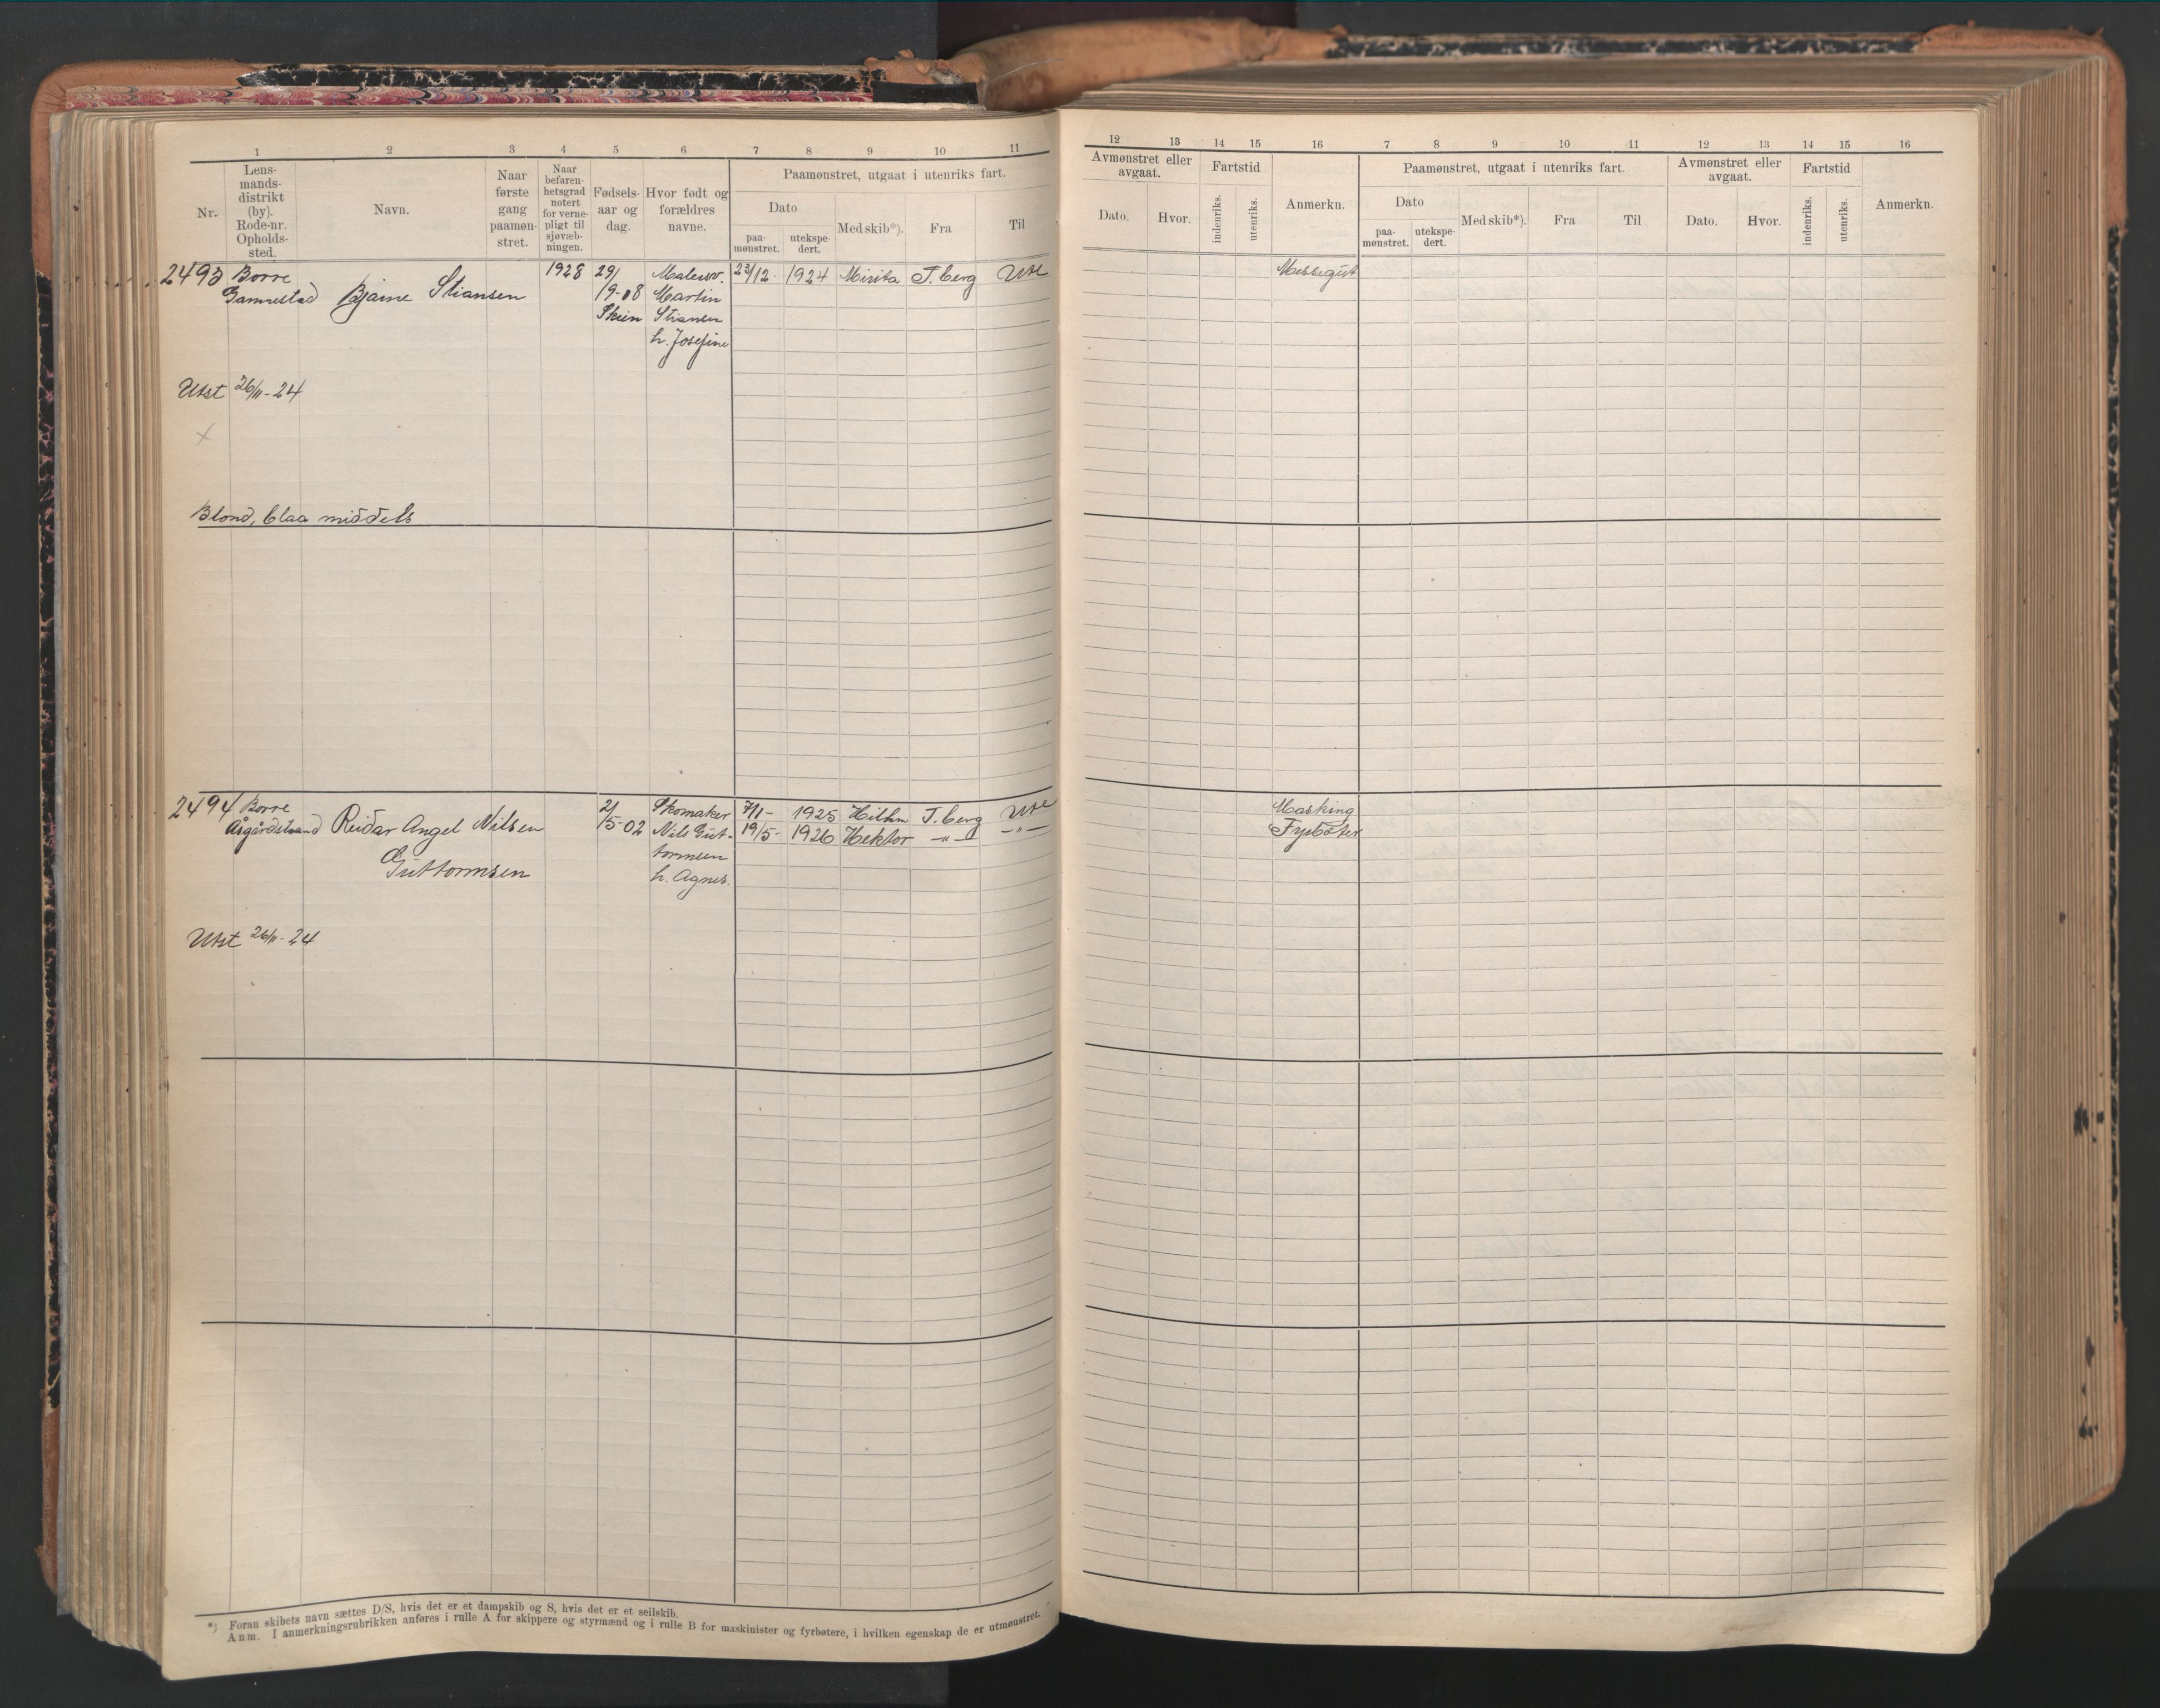 1 2 3 4 5 6 7 8 9 10 11
Nr.
Lens-
mands-
distrikt
(by).
Rode-nr.
Opholds-
sted.
Navn.
Naar
første
gang
paamøn-
stret.
Naar
befaren-
hetsgrad
notert
for verne-
pligt til
sjøvæb-
ningen.
Fødsels-
aar og
dag.
Hvor født og
forældres
navne.
Paamønstret, utgaat i utenriks fart.
Dato
paa-
mønstret.
utekspe-
dert.
Med skib*).
Fra
Til
2493 Borre 1928 29/ Malersv. 23/12- 1924 Mirita T.berg Ute
Gannestad Bjarne Stiansen /9-08 Martin
Skien Stiansen
h. Josefine
Utst 26/11-24
Blond, blaa middels
2494 Borre 2/ Skomaker 7/1- 1925 Hilhm T.berg Ute
Åsgårdstrand Reidar Angel Nilsen /5-02 Nils Gut- 19/5- 1926 Hektor -"- -"-
Guttormsen tormsen
h. Agnes.
Utst 26/11-24
*) Foran skibets navn sættes D/S, hvis det er et dampskib og S, hvis det er et seilskib.
Anm. I anmerkningsrubrikken anføres i rulle A for skippere og styrmænd og i rulle B for maskinister og fyrbøtere, i hvilken egenskap de er utmønstret.
12 13 14 15 16 7 8 9 10 11 12 13 14 15 16
Avmønstret eller
avgaat.
Dato.
Hvor.
Fartstid
indenriks.
utenriks.
Anmerkn.
Paamønstret, utgaat i utenriks fart.
Dato
paa-
mønstret.
utekspe-
dert.
Med skib*).
Fra
Til
Avmønstret eller
avgaat.
Dato.
Hvor.
Fartstid
indenriks.
utenriks.
Anmerkn.
Messegut
Masking
Fyrbøter